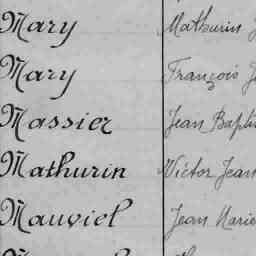 Mary Mathurin
Mary François
Massier Jean Bapti
Mathurin Victor Jean
Mauviel Jean Marie